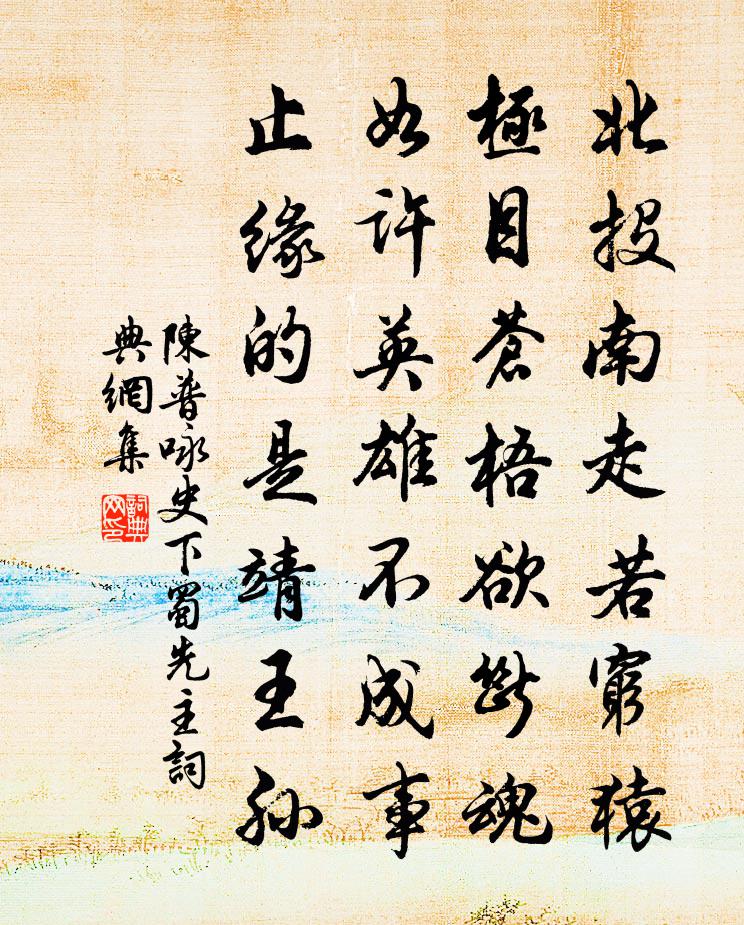 北投南走若窮猿
極目蒼梧欲斷魂
如許英雄不成事
止緣的是靖王孫
陳普咏史下蜀先主詞
典網集
詞典
网印